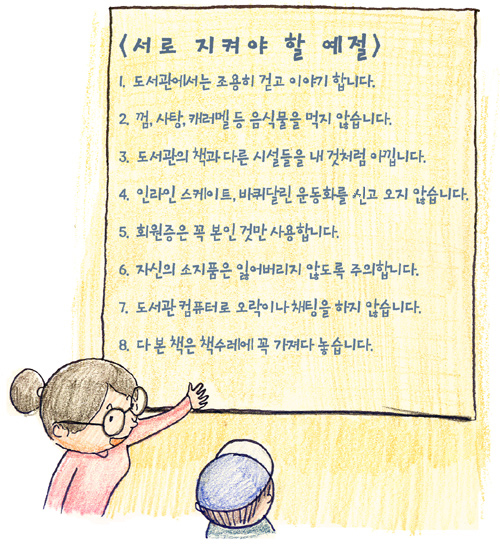 <서로 지켜야 할 예절>
1. 도서관에서는 조용히 걷고 이야기 합니다.
2. 껌, 사탕, 캐러멜 등 음식물을 먹지 않습니다.
3. 도서관의 책과 다른 시설들을 내 것처럼 아낍니다.
4. 인라인 스케이트, 바퀴달린 운동화를 신고 오지 않습니다.
5. 회원증은 꼭 본인 것만 사용합니다.
6. 자신의 소지품은 잃어버리지 않도록 주의합니다.
7. 도서관 컴퓨터로 오락이나 채팅을 하지 않습니다.
8. 다 본 책은 책수레에 꼭 가져다 놓습니다.